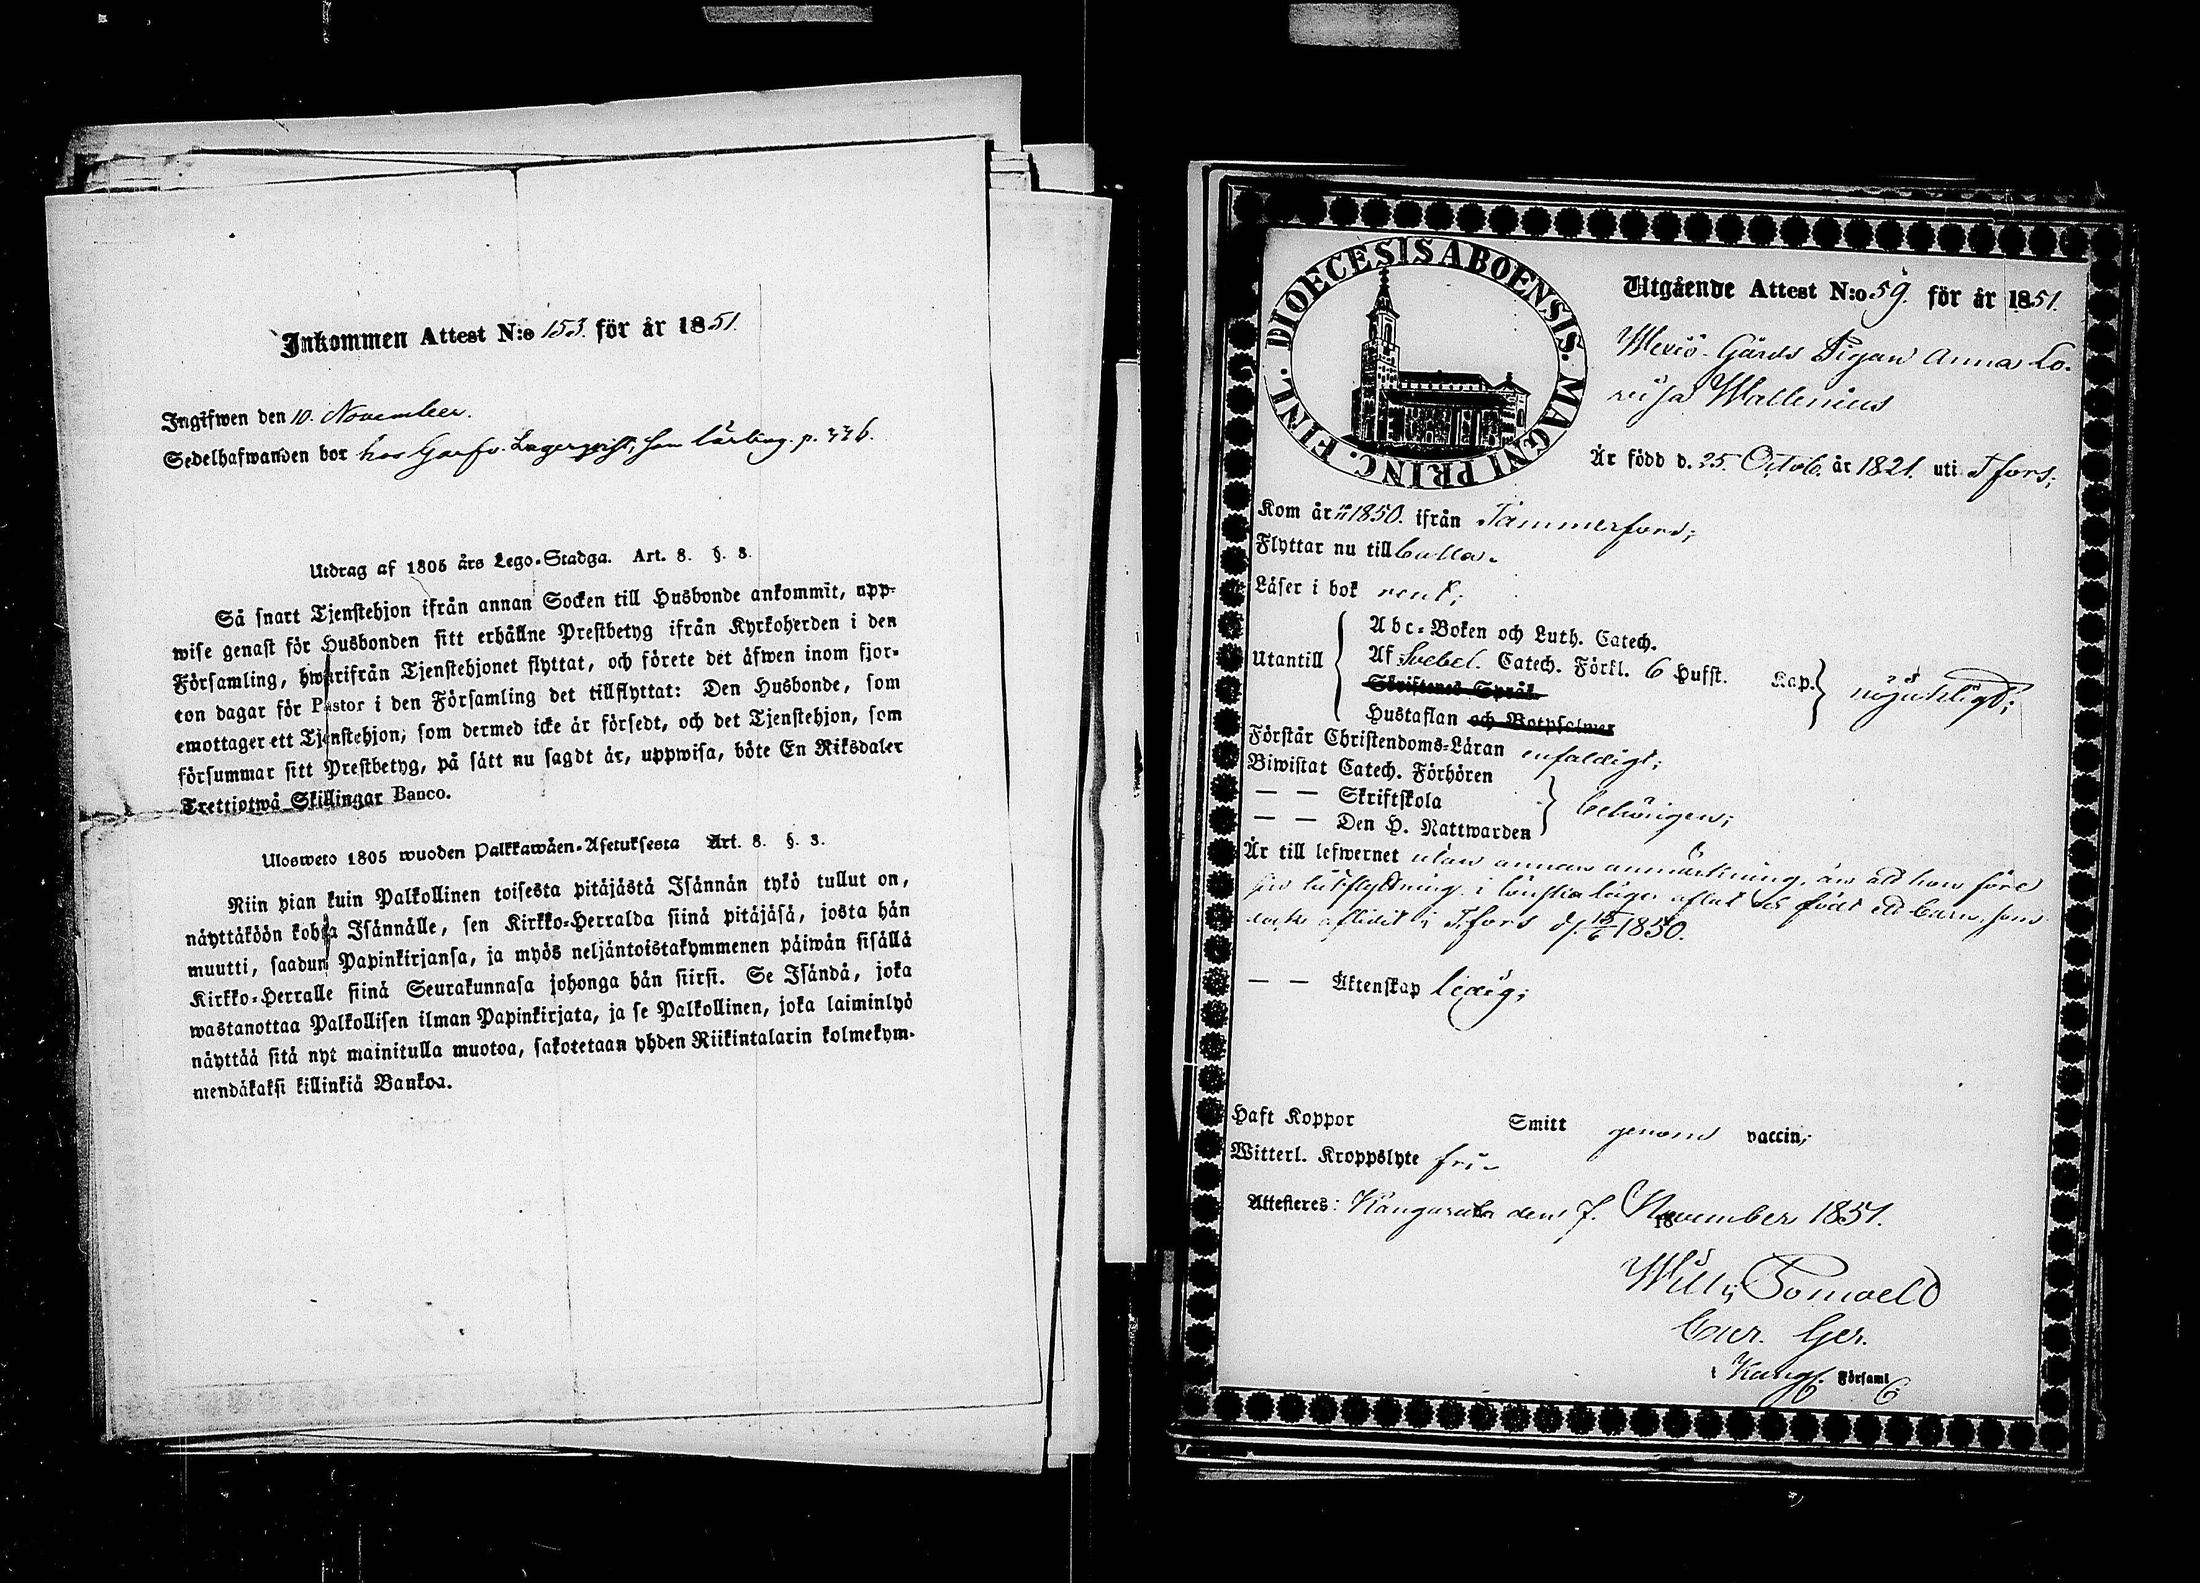 Inkommen Attest N:o 153. för år 1851.
Ingifwen den 10. November.
Sedelhafwanden bor hos Garfv. Lagerqvist, som lärling. p. 336.
Utdrag af 1805 års Lego-Stadga. Art. 8. §. 3.
Så snart Tjenstehjon ifrån annan Socken till Husbonde ankommit, upp-
wise genast för Husbonden sitt erhållne Prestbetyg ifrån Kyrkoherden i den
Församling, hwarifrån Tjenstehjonet flyttat, och förete det äfwen inom fjor-
ton dagar för Pastor i den Församling det tillflyttat: Den Husbonde, som
emottager ett Tjenstehjon, som dermed icke är försedt, och det Tjenstehjon, som
försummar sitt Prestbetyg, på sätt nu sagdt är, uppwisa, böte En Riksdaler
Trettiotwå Skillingar Banco.
Ulosweto 1805 wuoden Palkkawäen-Asetuksesta Art. 8. §. 3.
Niin pian kuin Palkollinen toisesta pitäjästä Isännän tykö tullut on,
näyttäköön kohta Isännälle, sen Kirkko-Herralda siinä pitäjäsä, josta hän
muutti, saadun Papinkirjansa, ja myös neljäntoistakymmenen päiwän sisällä
Kirkko-Herralle siinä Seurakunnasa johonga hän siirsi. Se Isändä, joka
wastanottaa Palkollisen ilman Papinkirjata, ja se Palkollinen, joka laiminlyö
näyttää sitä nyt mainitulla muotoa, sakotetaan yhden Riikintalarin kolmekym-
mendäkaksi killinkiä Bankoa.
DIOECESIS ABOENSIS. MAGNI PRINC. FINL.
Utgående Attest N:o 59. för år 1851.
Wexiö Gårds Pigan Anna Lo-
visa Wallenius
Är född d. 25. Octob. år 1821. uti Tfors;
Kom år 1850. ifrån Tammerfors;
Flyttar nu till
Läser i bok rent;
Abc-Boken och Luth. Catech.
Utantill Af Svebel. Catech. Förkl. 6 Hufst. Kap. nöjaktligt;
Skriftenes Språk.
Hustaflan och Botpsalmer
Förstår Christendoms-Läran enfaldigt;
Biwistat Catech. Förhören
— — Skriftskola behörigen;
— — Den H. Nattwarden
Är till lefwernet utan annan anmärkning, än att hon före
sin hitflyttning i lönskaläge aflat och födt ett barn, som
aflidit i Tfors d. 15/6 1850.
— — Äktenskap ledig;
Haft Koppor Smitt genom vaccin;
Witterl. Kroppslyte fri.
Attesteres: Kangasala den 7. November 1851.
18
Wilh.
Cur. Ger.
i Kang. Församl